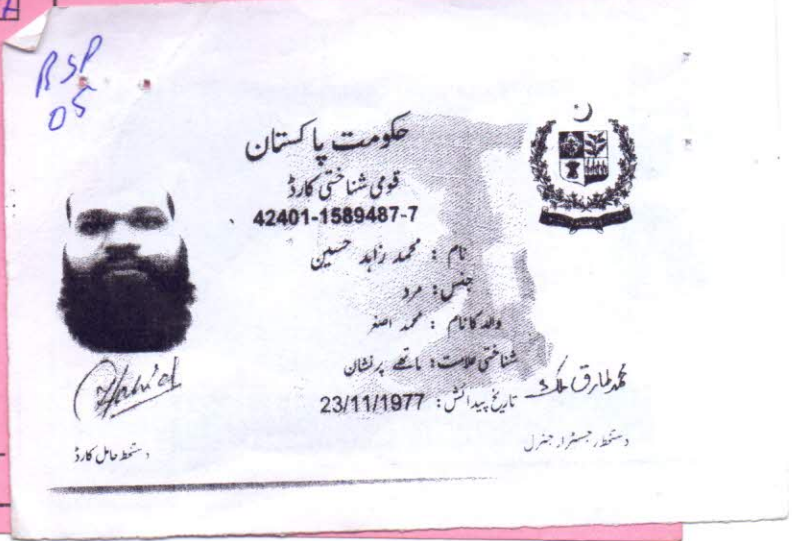 RSP
05
حکومت پاکستان
قومی شناختی کارڈ
42401-1589487-7
نام : محمد زاہد حسین
جنس: مرد
والد کا نام : محمد اصغر
شناختی علامت: ماتھے پر نشان
تاریخ پیدائش: 23/11/1977
Zahid
محمد طارق ملک
دستخط حامل کارڈ
دستخط رجسٹرار جنرل